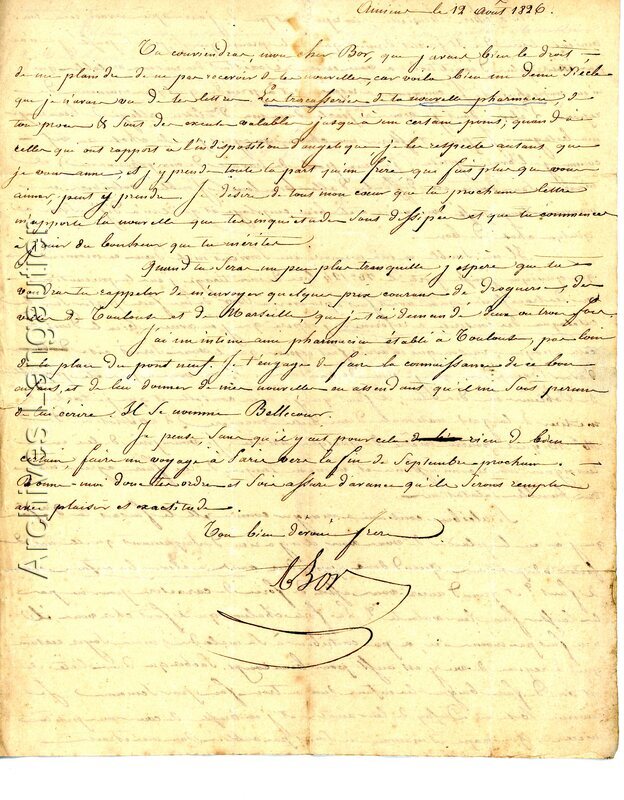 Amiens le 12 août 1826.
Tu conviendras, mon cher Bor, que j'avais bien le droit
de me plaindre de ne pas recevoir de tes nouvelles, car voila bien un demi Siècle
que je n'avais vu de tes lettres. Les tracasseries de ta nouvelle pharmacie, de
ton procès & Sont des excuses valables jusqu'à un certain point; quand à
celles qui ont rapport à l'indisposition d'angelique je les respecte autant que
je vous aime, et j'y prends toute la part qu'un frère qui fait plus que vous
aimer, peut y prendre. Je désire de tout mon cœur que ta prochaine lettre
m'apporte la nouvelle que tes inquiétudes Sont dissipées et que tu commences
à jouir du bonheur que tu mérites.
Quand tu Seras un peu plus tranquille j'espère que tu
voudras te rappeler de m'envoyer quelques prix courans de drogueries, des
villes de Toulouse et de Marseille, que je t'ai demandé deux ou trois fois.
J'ai un intime ami pharmacien établi à Toulouse, pas loin
de la place du pont neuf. Je t'engage de faire la connaissance de ce bon
enfant, et de lui donner de mes nouvelles en attendant qu'il me Soit permis
de lui écrire. Il Se nomme Bellecour.
Je pense, Sans qu'il y ait pour cela rien de bien
certain, faire un voyage à Paris vers la fin de Septembre prochain.
Donne-moi donc tes ordres et Sois assuré d'avance qu'ils Seront remplis
avec plaisir et exactitude.
Ton bien dévoué frère
ABor
Archives-Argentier